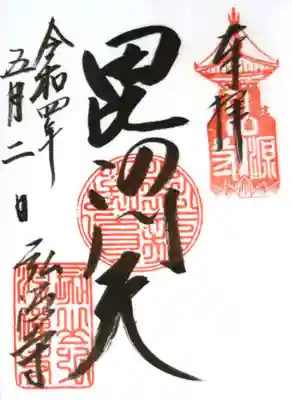 奉拝
毘沙門天
令和四年
五月二日
弘源寺